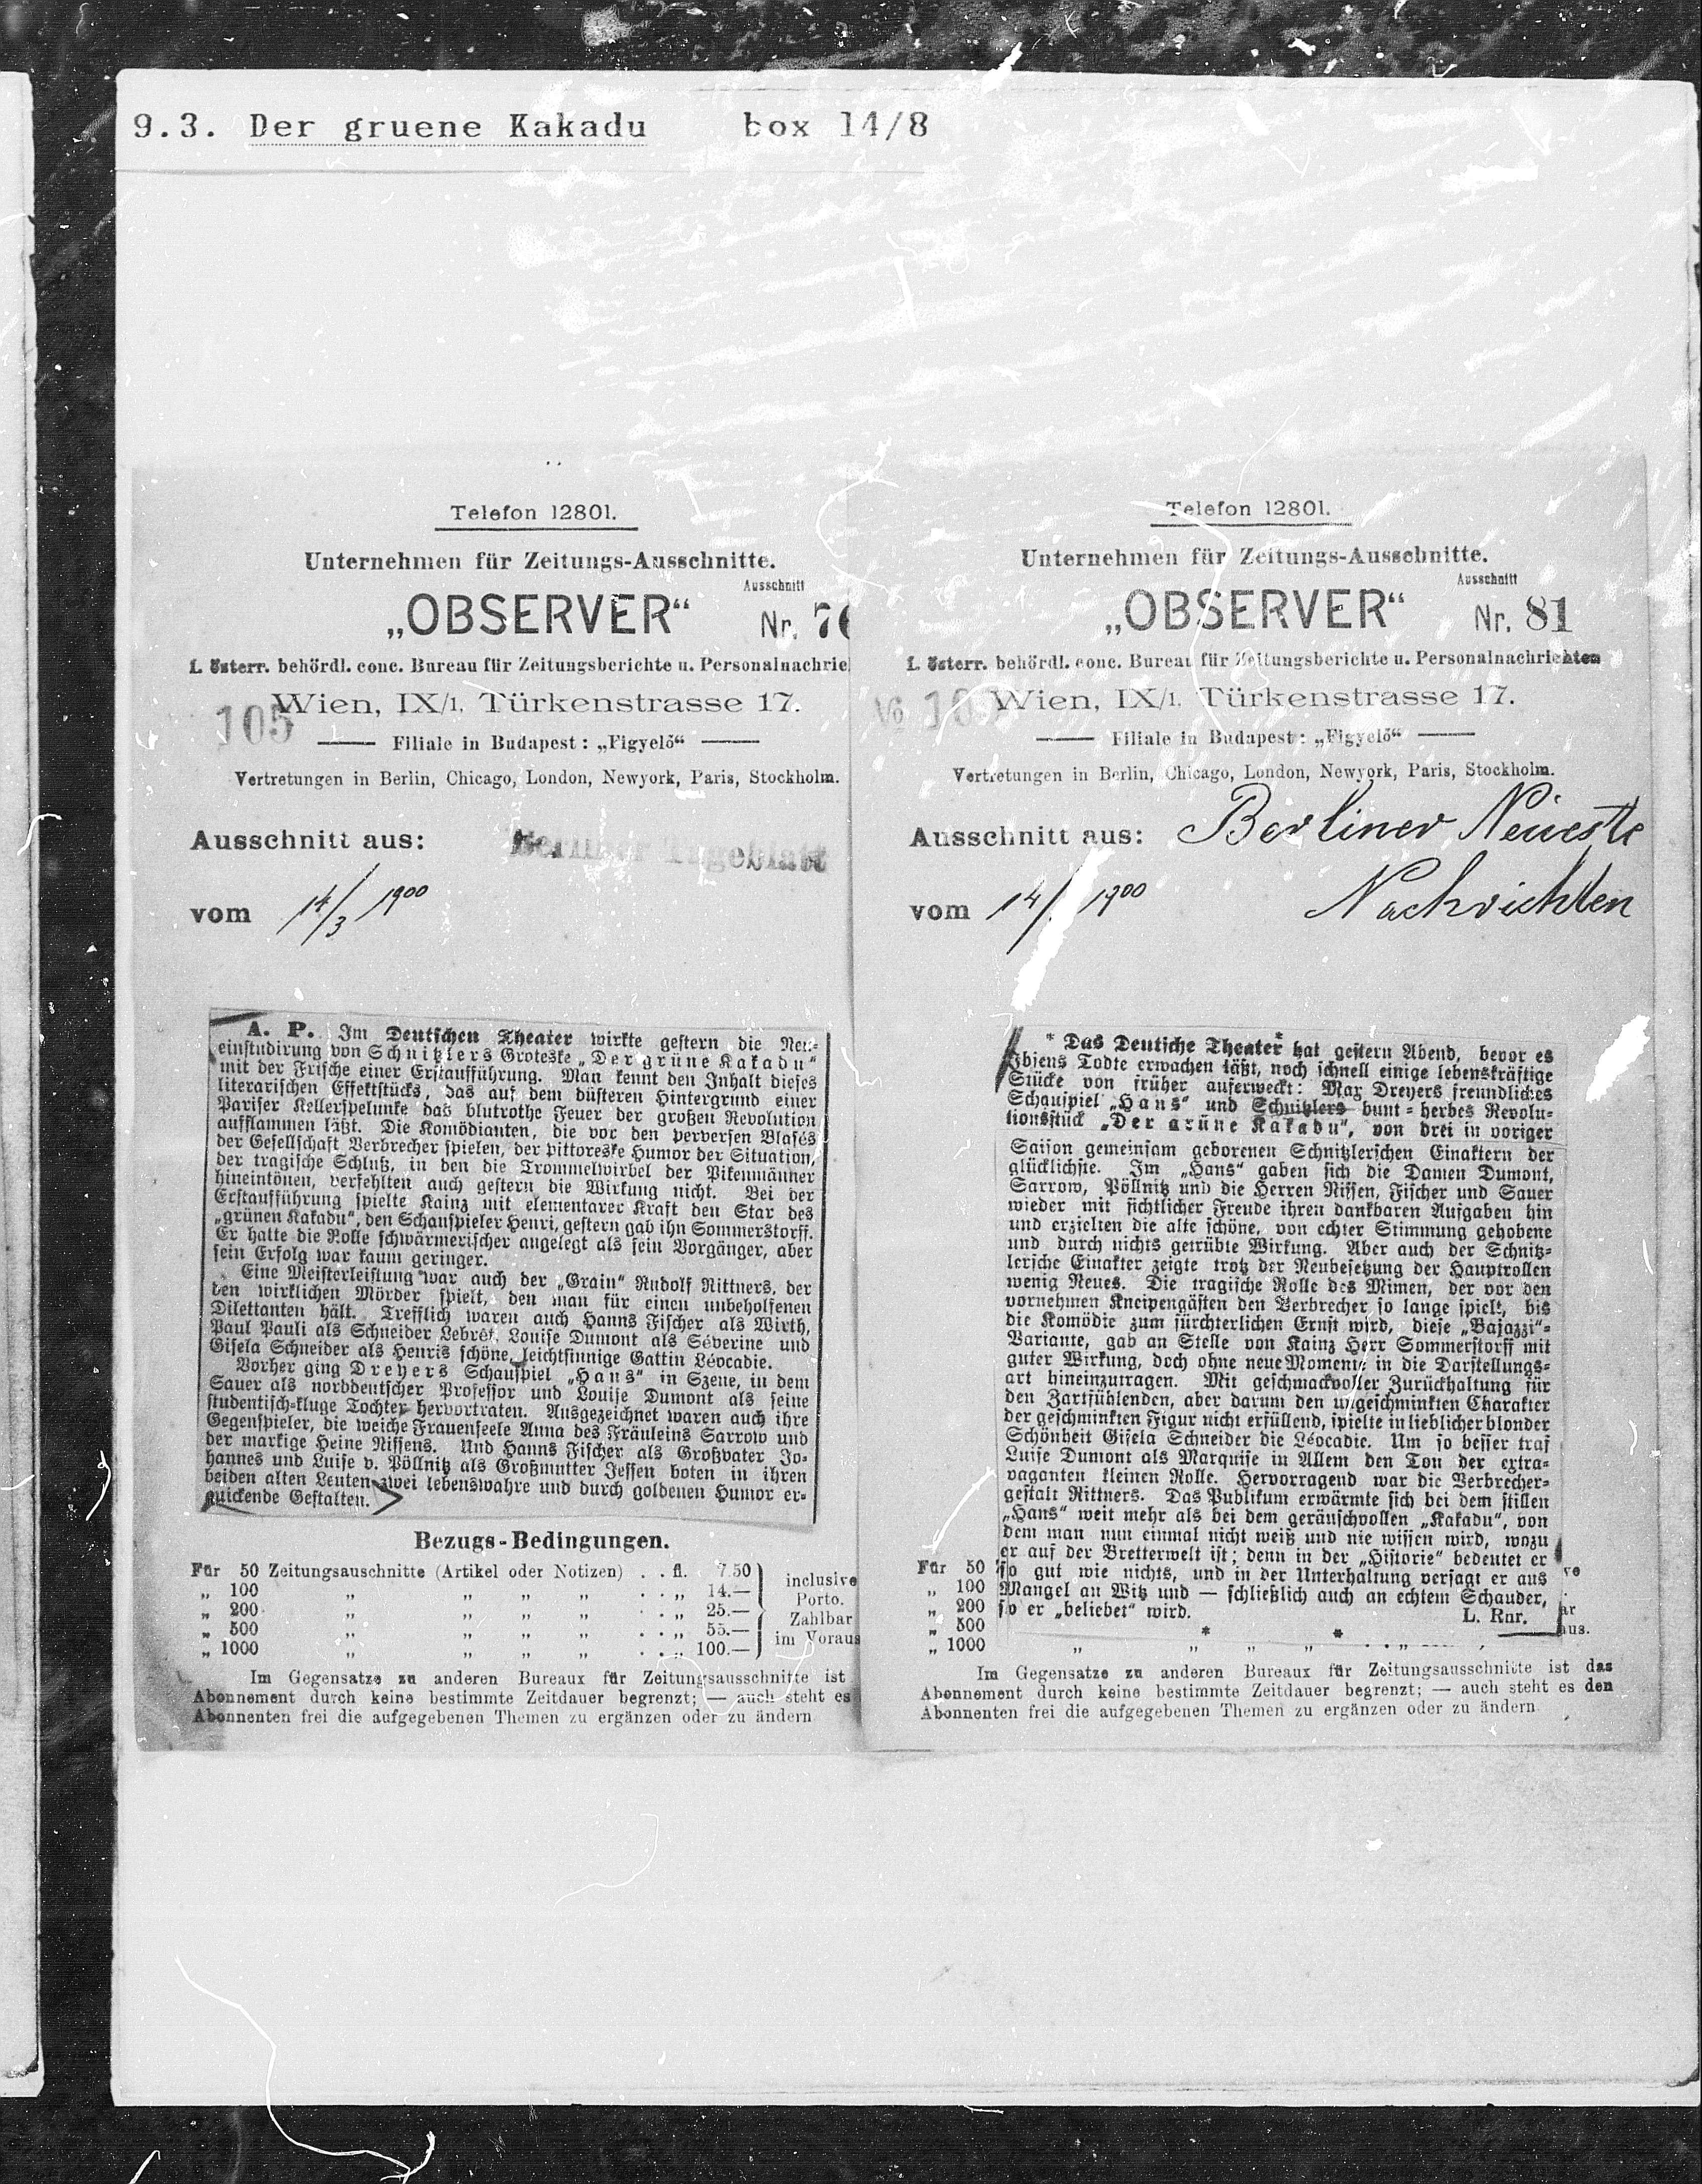 9.3. Der gruene Kakadu box 14/8
Telefon 12801.
Unternehmen für Zeitungs-Ausschnitte.
Ausschnitt
„OBSERVER“ Nr. 76
I. österr. behördl. conc. Bureau für Zeitungsberichte u. Personalnachric
105
Wien, IX/1, Türkenstrasse 17.
Filiale in Budapest: „Figyelő“
Vertretungen in Berlin, Chicago, London, Newyork, Paris, Stockholm.
Ausschnitt aus: Berliner Tageblatt
vom 14/3 1900
A. P. Im Deutschen Theater wirkte gestern die Neu-
einstudirung von Schnitzlers Groteske „Der grüne Kakadu“
mit der Frische einer Erstaufführung. Man kennt den Inhalt dieses
literarischen Effektstücks, das auf dem düsteren Hintergrund einer
Pariser Kellerspelunke das blutrothe Feuer der großen Revolution
aufflammen läßt. Die Komödianten, die vor den perversen Blasés
der Gesellschaft Verbrecher spielen, der pittoreske Humor der Situation,
der tragische Schluß, in den die Trommelwirbel der Pikenmänner
hineintönen, verfehlten auch gestern die Wirkung nicht. Bei der
Erstaufführung spielte Kainz mit elementarer Kraft den Star des
„grünen Kakadu“, den Schauspieler Henri, gestern gab ihn Sommerstorff.
Er hatte die Rolle schwärmerischer angelegt als sein Vorgänger, aber
sein Erfolg war kaum geringer.
Eine Meisterleistung war auch der „Grain“ Rudolf Rittners, der
den wirklichen Mörder spielt, den man für einen unbeholfenen
Dilettanten hält. Trefflich waren auch Hanns Fischer als Wirth,
Paul Pauli als Schneider Lebrét, Louise Dumont als Séverine und
Gisela Schneider als Henris schöne, leichtsinnige Gattin Léocadie.
Vorher ging Dreyers Schauspiel „Hans“ in Szene, in dem
Sauer als norddeutscher Professor und Louise Dumont als seine
studentisch-kluge Tochter hervortraten. Ausgezeichnet waren auch ihre
Gegenspieler, die weiche Frauenseele Anna des Fräuleins Sarrow und
der markige Heine Nissens. Und Hanns Fischer als Großvater Jo-
hannes und Luise v. Pöllnitz als Großmutter Jessen boten in ihren
beiden alten Leuten zwei lebenswahre und durch goldenen Humor er-
quickende Gestalten.
Bezugs-Bedingungen.
Für 50 Zeitungsauschnitte (Artikel oder Notizen) . . fl. 7.50 inclusive
„ 100 „ „ „ „ . . „ 14.— Porto.
„ 200 „ „ „ „ . . „ 25.— Zahlbar
„ 500 „ „ „ „ . . „ 55.— im Voraus
„ 1000 „ „ „ „ . . „ 100.—
Im Gegensatze zu anderen Bureaux für Zeitungsausschnitte ist
Abonnement durch keine bestimmte Zeitdauer begrenzt; — auch steht es
Abonnenten frei die aufgegebenen Themen zu ergänzen oder zu ändern
Telefon 12801.
Unternehmen für Zeitungs-Ausschnitte.
Ausschnitt
„OBSERVER“ Nr. 81
I. österr. behördl. conc. Bureau für Zeitungsberichte u. Personalnachrichten
Wien, IX/1, Türkenstrasse 17.
Filiale in Budapest: „Figyelő“
Vertretungen in Berlin, Chicago, London, Newyork, Paris, Stockholm.
Ausschnitt aus: Berliner Neueste
vom 14/ 1900 Nachrichten
* Das Deutsche Theater hat gestern Abend, bevor es
Ibsens Todte erwachen läßt, noch schnell einige lebenskräftige
Stücke von früher auferweckt: Max Dreyers freundliches
Schauspiel „Hans“ und Schnitzlers bunt-herbes Revolu-
tionsstück „Der grüne Kakadu“, von drei in voriger
Saison gemeinsam geborenen Schnitzlerschen Einaktern der
glücklichste. Im „Hans“ gaben sich die Damen Dumont,
Sarrow, Pöllnitz und die Herren Nissen, Fischer und Sauer
wieder mit sichtlicher Freude ihren dankbaren Aufgaben hin
und erzielten die alte schöne, von echter Stimmung gehobene
und durch nichts getrübte Wirkung. Aber auch der Schnitz-
lersche Einakter zeigte trotz der Neubesetzung der Hauptrollen
wenig Neues. Die tragische Rolle des Mimen, der vor den
vornehmen Kneipengästen den Verbrecher so lange spielt, bis
die Komödie zum fürchterlichen Ernst wird, diese „Bajazzi“-
Variante, gab an Stelle von Kainz Herr Sommerstorff mit
guter Wirkung, doch ohne neue Momente in die Darstellungs-
art hineinzutragen. Mit geschmackvoller Zurückhaltung für
den Zartfühlenden, aber darum den ungeschminkten Charakter
der geschminkten Figur nicht erfüllend, spielte in lieblicher blonder
Schönheit Gisela Schneider die Léocadie. Um so besser traf
Luise Dumont als Marquise in Allem den Ton der extra-
vaganten kleinen Rolle. Hervorragend war die Verbrecher-
gestalt Rittners. Das Publikum erwärmte sich bei dem stillen
„Hans“ weit mehr als bei dem geräuschvollen „Kakadu“, von
dem man nun einmal nicht weiß und nie wissen wird, wozu
er auf der Bretterwelt ist; denn in der „Historie“ bedeutet er
so gut wie nichts, und in der Unterhaltung versagt er aus
Mangel an Witz und — schließlich auch an echtem Schauder,
so er „beliebet“ wird. L. Rnr.
Für 50
„ 100
„ 200
„ 500
„ 1000 „ „ „ „ . . „
Im Gegensatze zu anderen Bureaux für Zeitungsausschnitte ist das
Abonnement durch keine bestimmte Zeitdauer begrenzt; — auch steht es den
Abonnenten frei die aufgegebenen Themen zu ergänzen oder zu ändern